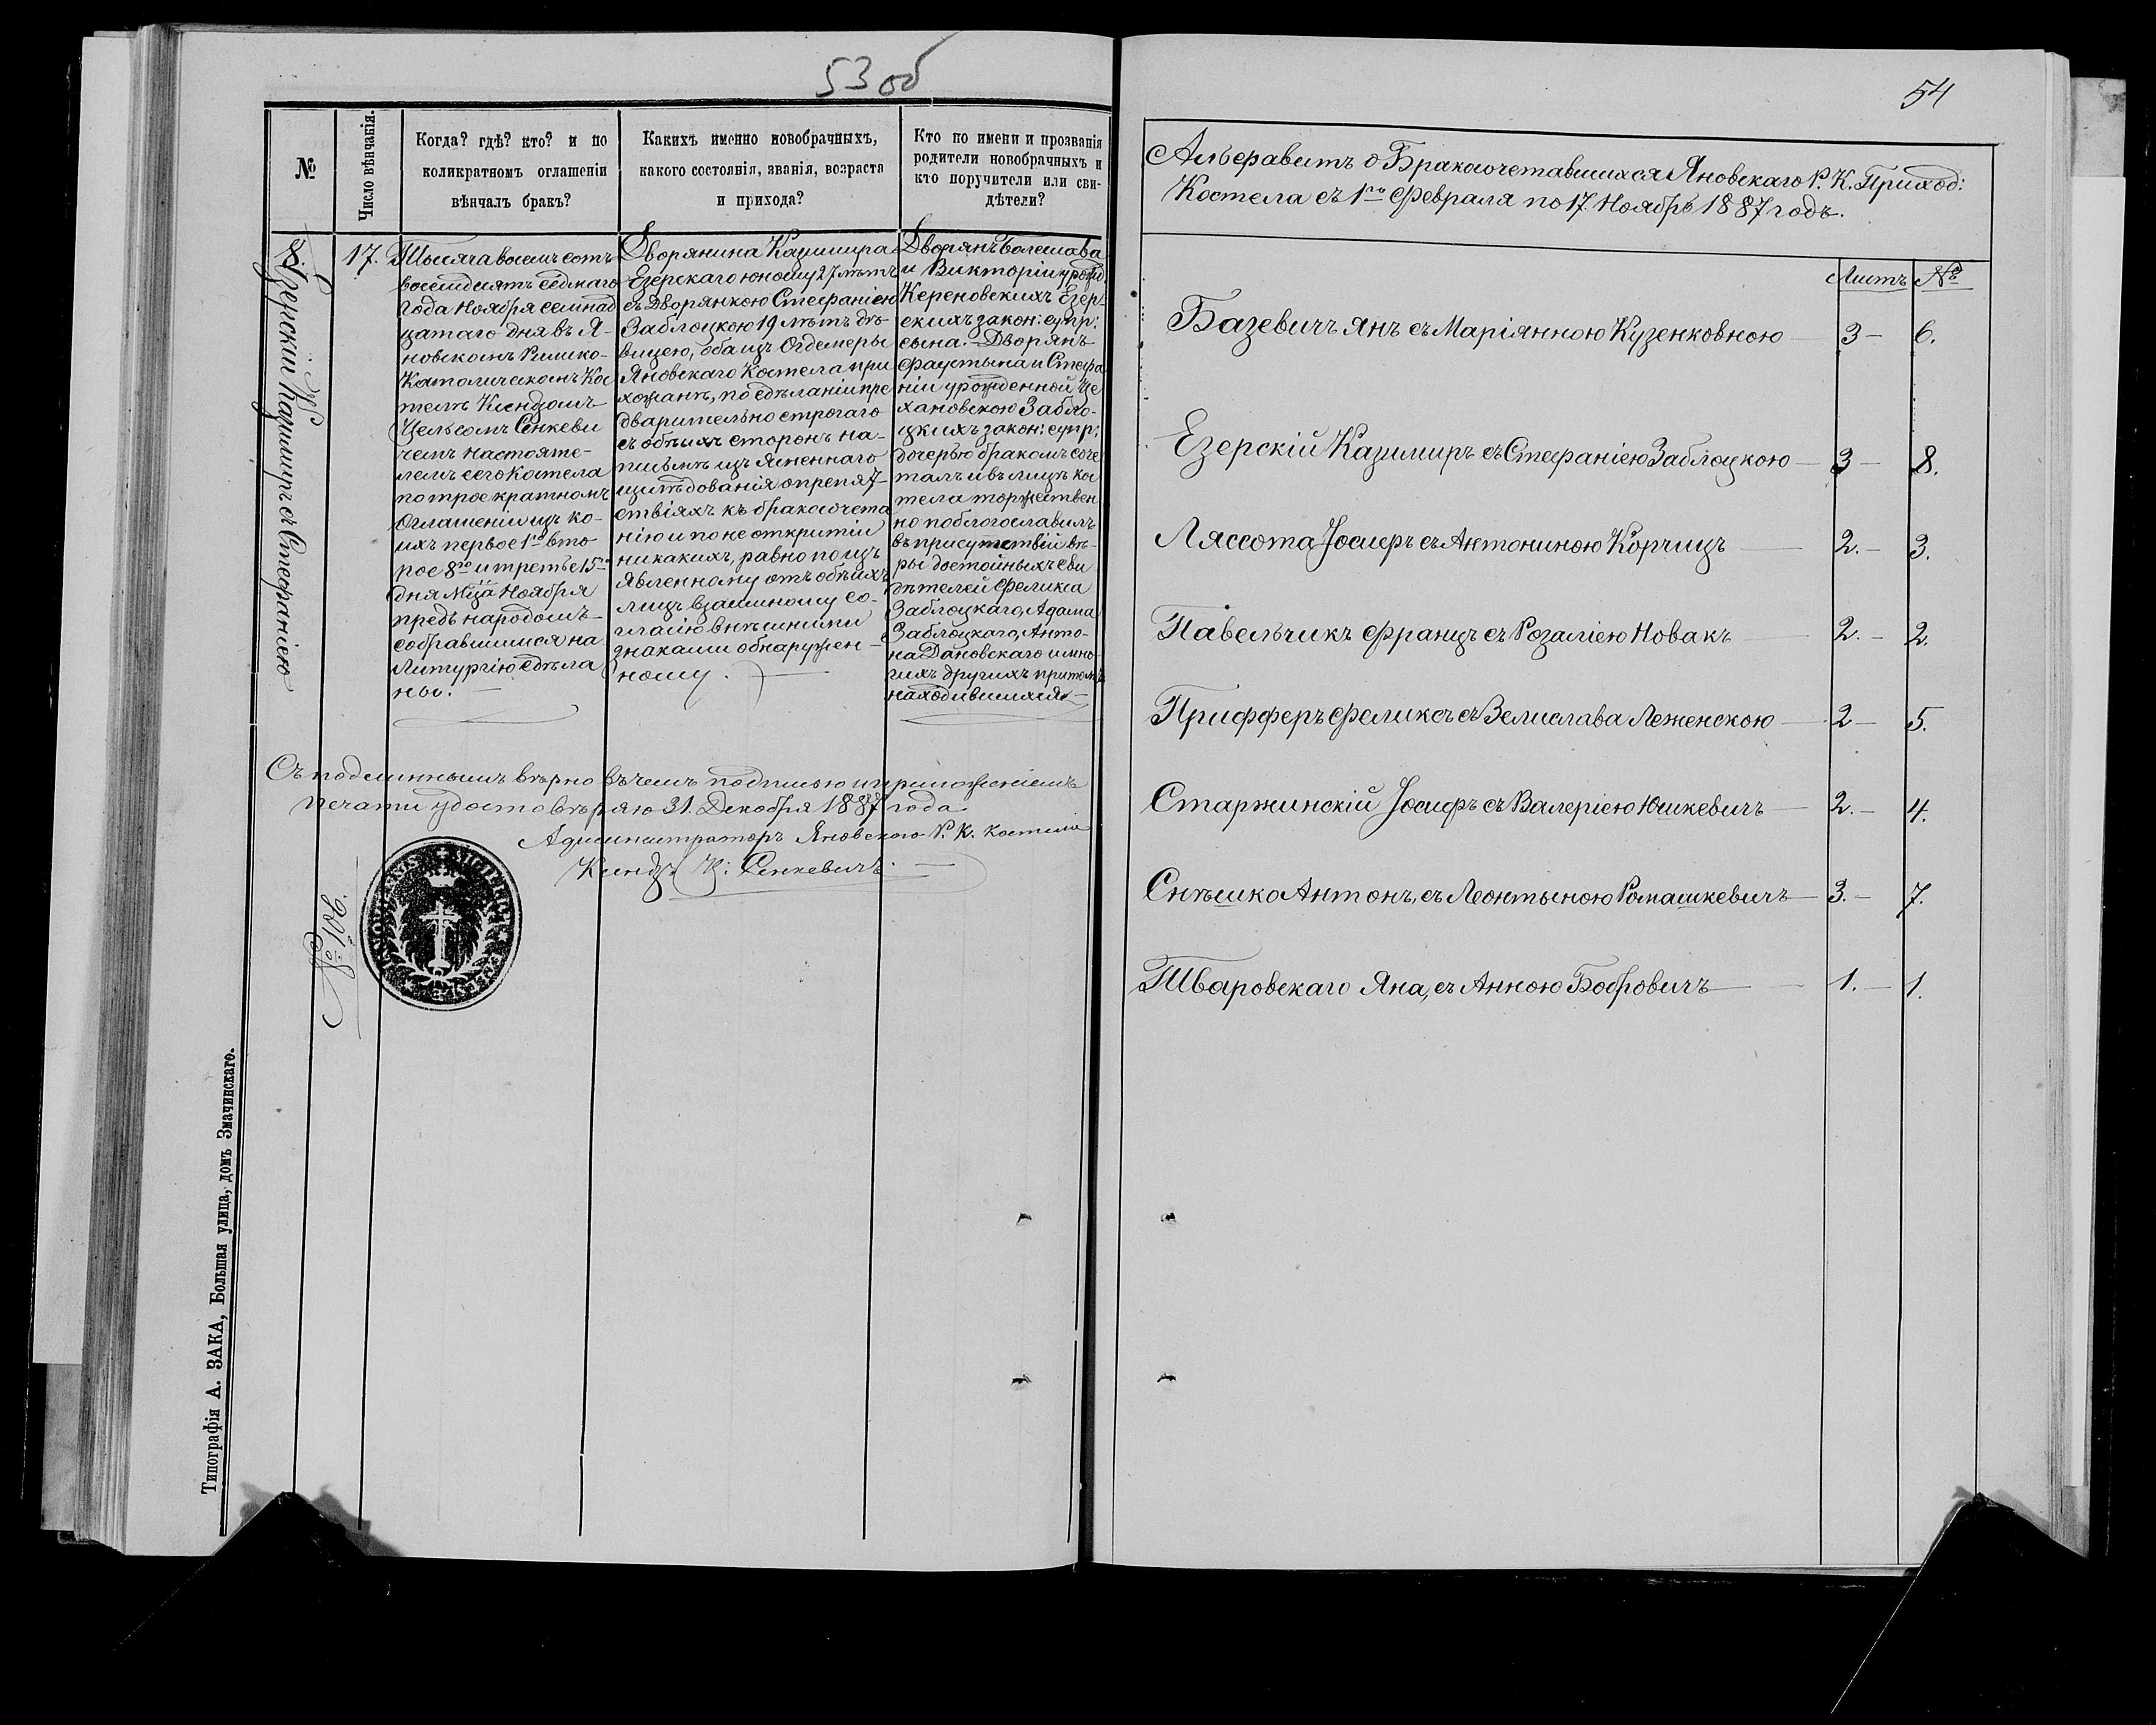 53 об
№
Число вѣнчанія.
Когда? гдѣ? кто? и по
коликратномъ оглашеніи
вѣнчалъ бракъ?
Какихъ именно новобрачныхъ,
какого состоянія, званія, возраста
и прихода?
Кто по имени и прозванія
родители новобрачныхъ и
кто поручители или сви-
дѣтели?
8.
Езерскій Казимиръ съ Стефаніею
17.
Тысяча восемь сотъ
восемдесятъ седмаго
года Ноября семнад
цатаго дня въ Я-
новскомъ Римско-
Католическомъ Кос
телѣ Ксендзомъ
Цельсомъ Сенкеви
чемъ настояте-
лемъ сего Костела
по трое кратномъ
оглашеніи изъ ко-
ихъ первое 1го вто-
рое 8го и третье 15го
дня Мца Ноября
предъ народомъ
собравшимся на
Литургію сдѣла
ны.
Дворянина Казимира
Езерскаго юношу 27 лѣтъ
съ Дворянкою Стефаніею
Заблоцкою 19 лѣтъ дѣ-
вицею, оба изъ Огдемеры
Яновскаго Костела при
хожанъ, по сдѣланіи пре
дварительно строгаго
съ обѣихъ сторонъ на-
письмѣ изъясненнаго
изслѣдованія о препят-
ствіяхъ къ бракосочета
нію и по не открытіи
никакихъ, равно по изъ
явленному отъ обѣихъ
лицъ взаимному со-
гласію внѣшними
знаками обнаружен-
ному.
Дворянъ Болеслава
и Викторіи урожд.
Кереновскихъ Езер-
скихъ закон: супр:
сына. Дворянъ
Фаустына и Стефа
ніи урожденной Це
хановскою Забло-
цкихъ закон: супр:
дочерью бракомъ соче
талъ и въ лицѣ кос
тела торжествен
но поблогославилъ
въ присутствіи вѣ-
ры достойныхъ сви
дѣтелей Феликса
Заблоцкаго, Адама
Заблоцкаго, Анто-
на Дановскаго и мно
гихъ другихъ притомъ
находившихся.
Съ подлиннымъ вѣрно въ чемъ подписью и приложеніемъ
печати удостовѣряю 31. Декабря 1887 года
Администраторъ Яновскаго Р. К. костела
Ксендзъ Ц: Сенкевичъ.
№ 106.
Типографія А. ЗАКА, Большая улица, домъ Змачинскаго.
54
Альфавитъ о Бракосочетавшихся Яновскаго Р. К. Приход:
Костела съ 1го Февраля по 17. Ноябрь 1887 годъ.
Листъ №
Базевичъ Янъ съ Маріянною Кузенковною 3 6.
Езерскій Казимиръ съ Стефаніею Заблоцкою 3 8.
Ляссота Іосифъ съ Антониною Корчицъ 2. 3.
Павельчикъ Францъ съ Розаліею Новакъ 2. 2.
Приффферъ Феликсъ съ Велислава Леженскою 2 5.
Старжинскій Іосифъ съ Валеріею Юшкевичъ 2. 4.
Снѣшко Антонъ, съ Леонтыною Ромашкевичъ 3. 7.
Тваровскаго Яна, съ Анною Бобровичъ 1. 1.